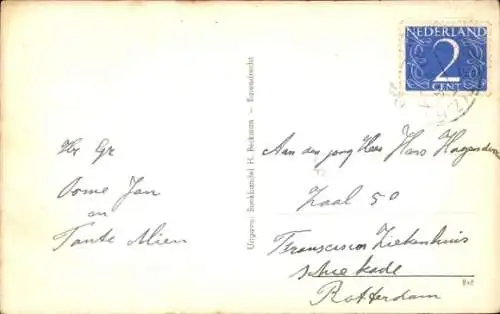 Hr Gr
Oome Jan
en
Tante Mien
Uitgave: Boekhandel H. Beekman - Barendrecht
NEDERLAND
2
CENT
Aan den jong Heer Hans
Zaal 50
Franciscus Ziekenhuis
Schiekade
Rotterdam